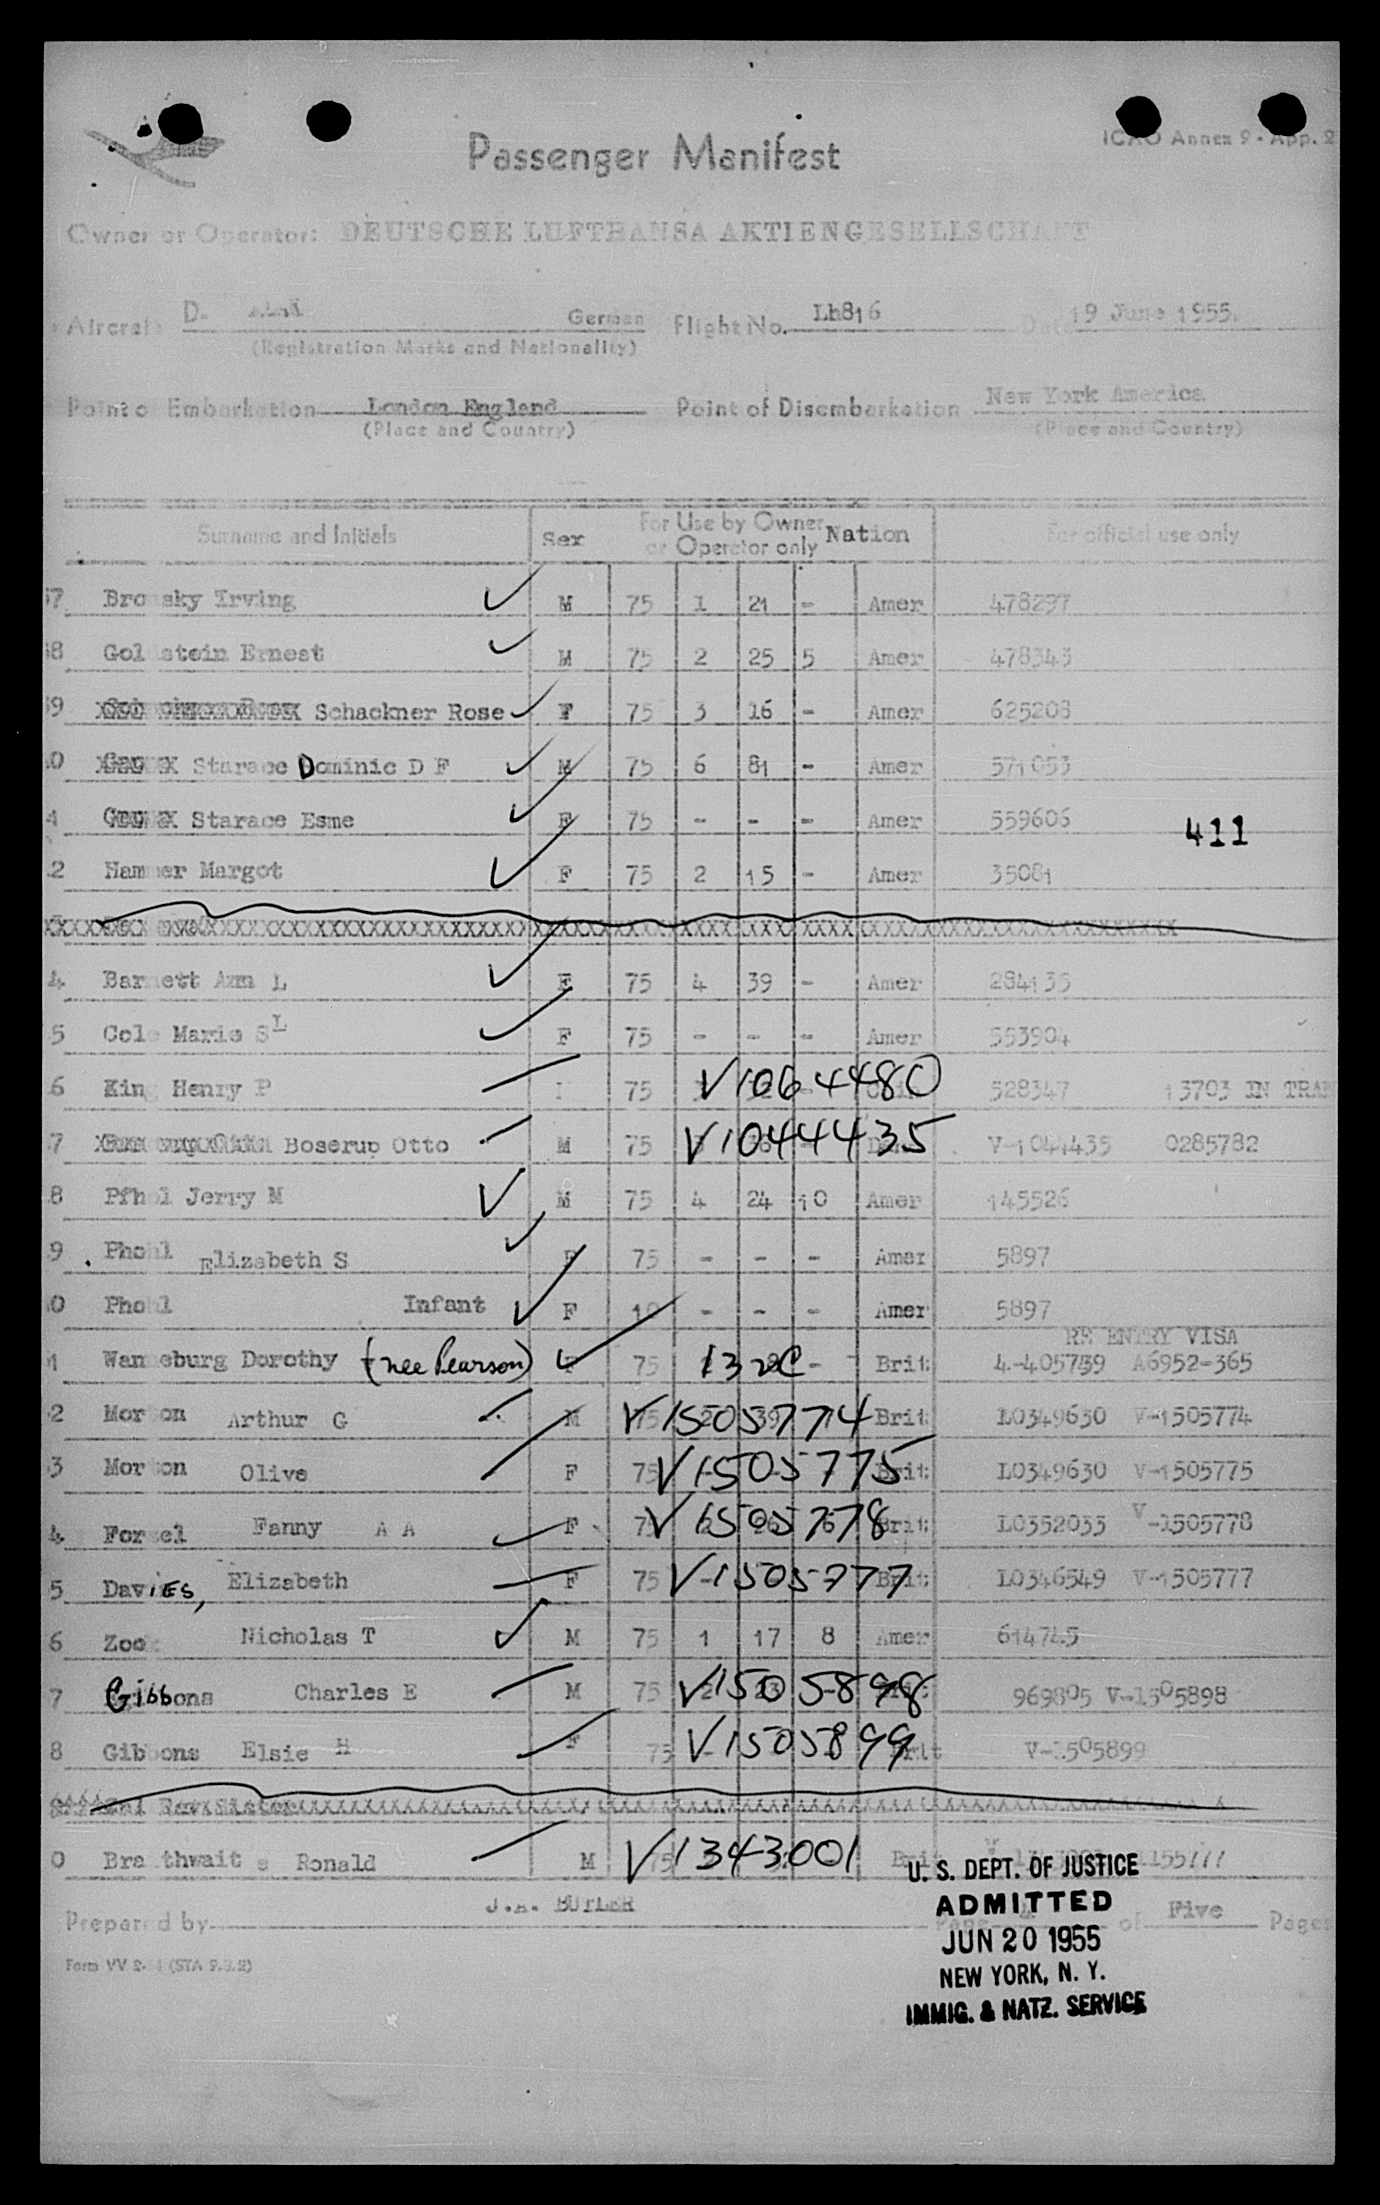 Passenger Manifest
ICAO Annex 9 - App. 2
Owner or Operator: DEUTSCHE LUFTHANSA AKTIENGESELLSCHAFT
Aircraft D. German Flight No. Lh816 Date 19 June 1955.
(Registration Marks and Nationality)
Point of Embarkation London England Point of Disembarkation New York America
(Place and Country) (Place and Country)
Surname and Initials Sex For Use by Owner or Operator only Nation For official use only
37 Bronsky Irving M 75 1 21 - Amer 478297
38 Goldstein Ernest M 75 2 25 5 Amer 478343
39 Schackner Rose F 75 3 16 - Amer 625208
40 Starace Dominic D F M 75 6 81 - Amer 571053
Starace Esme F 75 - - - Amer 559606
411
2 Hammer Margot F 75 2 15 - Amer 35081
4 Barnett Ann L F 75 4 39 - Amer 284135
5 Cole Marie S L F 75 - - - Amer 553904
6 King Henry P 75 V1064480 528347 13703 IN TRAN
7 Boserup Otto M 75 V1044435 V-1044435 0285782
8 Pfhol Jerry M M 75 4 24 10 Amer 145526
9 Phohl Elizabeth S F 75 - - - Amer 5897
0 Phohl Infant F 10 - - - Amer 5897
RE ENTRY VISA
1 Wanneburg Dorothy (nee Pearson) F 75 - Brit 4-405739 A6952-365
2 Morton Arthur G M 75 V1505774 Brit L0349630 V-1505774
3 Morton Olive F 75 V1505775 Brit L0349630 V-1505775
4 Forsel Fanny A A F 75 V1505778 Brit L0352033 V-1505778
5 Davies, Elizabeth F 75 V-1505777 Brit L0346549 V-1505777
6 Zook Nicholas T M 75 1 17 8 Amer 614745
7 Gibbons Charles E M 75 V1505898 Brit 969805 V-1505898
8 Gibbons Elsie H F 75 V1505899 Brit V-1505899
0 Braithwaite Ronald M 75 V1343001 Brit 155777
J.A. BUTLER
Prepared by Page 4 of Five Pages
Form VV 2-
U. S. DEPT. OF JUSTICE
ADMITTED
JUN 20 1955
NEW YORK, N. Y.
IMMIG. & NATZ. SERVICE